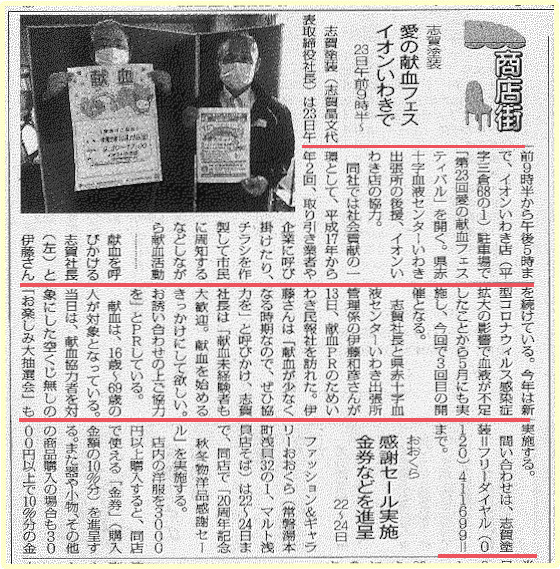 商店街
志賀塗装
愛の献血フェス
イオンいわきで
23日午前9時半〜
志賀塗装(志賀晶文代
表取締役社長)は23日午
献血
前9時半から午後5時ま
で、イオンいわき店(平
字三倉68の1)駐車場で
「第23回愛の献血フェス
ティバル」を開く。県赤
十字血液センターいわき
出張所の後援、イオンい
わき店の協力。
同社では社会貢献の一
環として、平成17年から
年2回、取り引き業者や
企業に呼び
掛けたり、
チラシを作
製して市民
に周知する
などしなが
ら献血活動
献血を呼
びかける
志賀社長
(左)と
伊藤さん
を続けている。今年は新
型コロナウィルス感染症
拡大の影響で血液が不足
したことから5月にも実
施し、今回で3回目の開
催となる。
志賀社長と県赤十字血
液センターいわき出張所
管理係の伊藤和彦さんが
13日、献血PRのためい
わき民報社を訪れた。伊
藤さんは「献血が少なく
なる時期なので、ぜひ協
力を」と呼びかけ、志賀
社長は「献血未経験者も
大歓迎。献血を始める
きっかけにして欲しい。
お誘い合わせの上ご協力
を」とPRしている。
献血は、16歳〜69歳の
人が対象となっている。
当日は、献血協力者を対
象にした空くじ無しの
「お楽しみ大抽選会」も
実施する。
問い合わせは、志賀塗
装=フリーダイヤル(0
120)411699=
まで。
おおくら
感謝セール実施
金券などを進呈
22〜24日
ファッション&ギャラ
リーおおくら(常磐湯本
町浅貝32の1、マルト浅
貝店そば)は22〜24日ま
で、同店で「20周年記念
秋冬物洋品感謝セー
ル」を実施する。
店内の洋服を3000
円以上購入すると、同店
で使える「金券」(購入
金額の10%分)を進呈す
る。また器や小物、その他
の商品購入の場合も30
00円以上で10%分の金